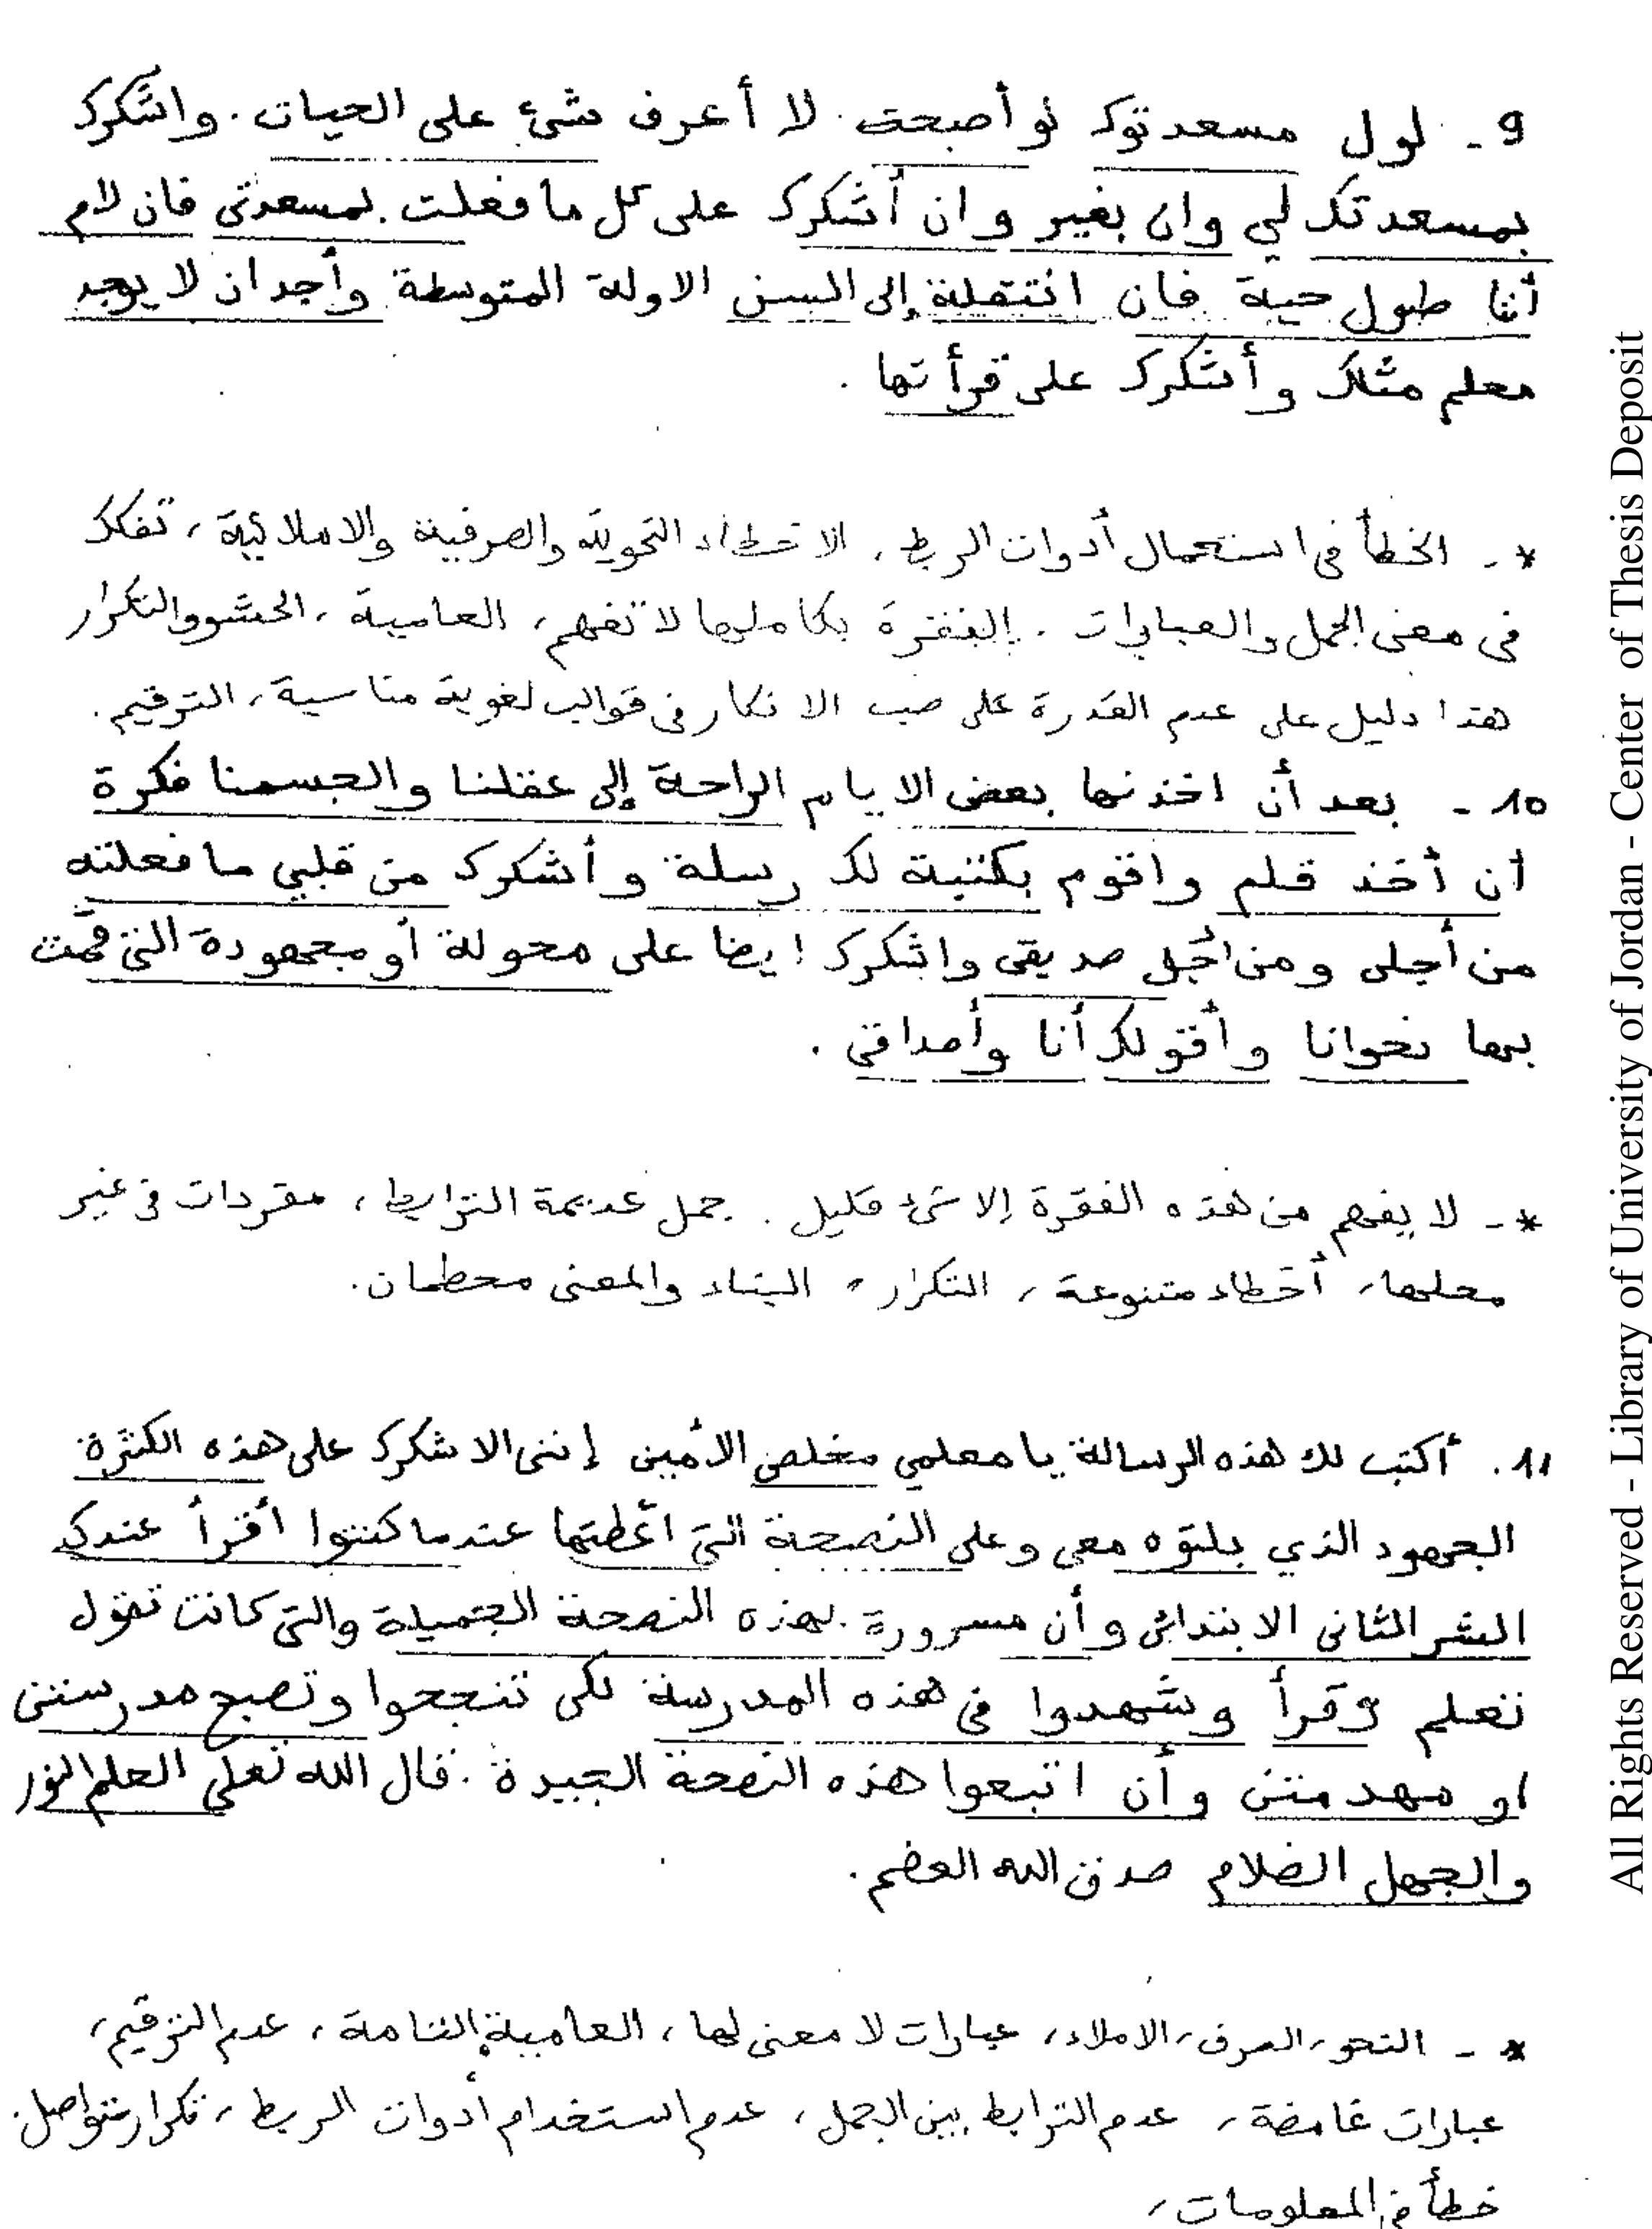 9 - لول مسعدتوك لو أصبحت لا أعرف شئ على الحيات. واشكرك
بمسعدتك لي وان بغير وان أشكرك على كل ما فعلت لمسعدتى فان لام
أنا طول حية فان انتقلة إلى السن الاولة المتوسطة وأجد ان لا يوجد
معلم مثلك وأشكرك على قرأتها .
* - الخطأ في استعمال أدوات الربط ، الاخطاء النحوية والصرفية والاملائية ، تفكك
في معنى الجمل والعبارات . الفقرة بكاملها لا تفهم ، العامية ، الحشو والتكرار
هذا دليل على عدم القدرة على صب الافكار في قوالب لغوية مناسبة ، الترقيم .
10 - بعد أن اخذنها بعض الايام الراحة إلى عقلنا والجسمنا فكرة
أن أخذ قلم واقوم بكتبة لك رسلة وأشكرك من قلبي ما فعلته
من أجلى ومن أجل صديقى واشكرك ايضا على محولة أو مجهودة التى قمت
بها نحوانا وأقولك أنا وأصداقى .
* - لا يفهم من هذه الفقرة إلا شئ قليل . جمل عديمة الترابط ، مفردات في غير
محلها ، أخطاء متنوعة ، التكرار ، البناء والمعنى محطمان .
11 . أكتب لك هذه الرسالة يا معلمي مخلص الأمين إننى الاشكرك على هذه الكثرة
الجهود الذي بلتوه معى وعلى النصحة التى أعطتها عندما كنتوا أقرأ عندك
الشر الثانى الابتدائى وأن مسرورة بهذه النصحة الجميلة والتى كانت تقول
نعلم وقرأ وشهدوا في هذه المدرسة لكى تنجحوا وتصبح مدرستنى
او مهد متنى وأن اتبعوا هذه النصحة الجيدة . قال الله تعلى العلم النور
والجهل الضلام صدق الله العضم .
* - النحو ، الصرف ، الاملاء ، عبارات لا معنى لها ، العامية التامة ، عدم الترقيم ،
عبارات غامضة ، عدم الترابط بين الجمل ، عدم استخدام أدوات الربط ، تكرار متواصل .
خطأ في المعلومات ،
All Rights Reserved - Library of University of Jordan - Center of Thesis Deposit